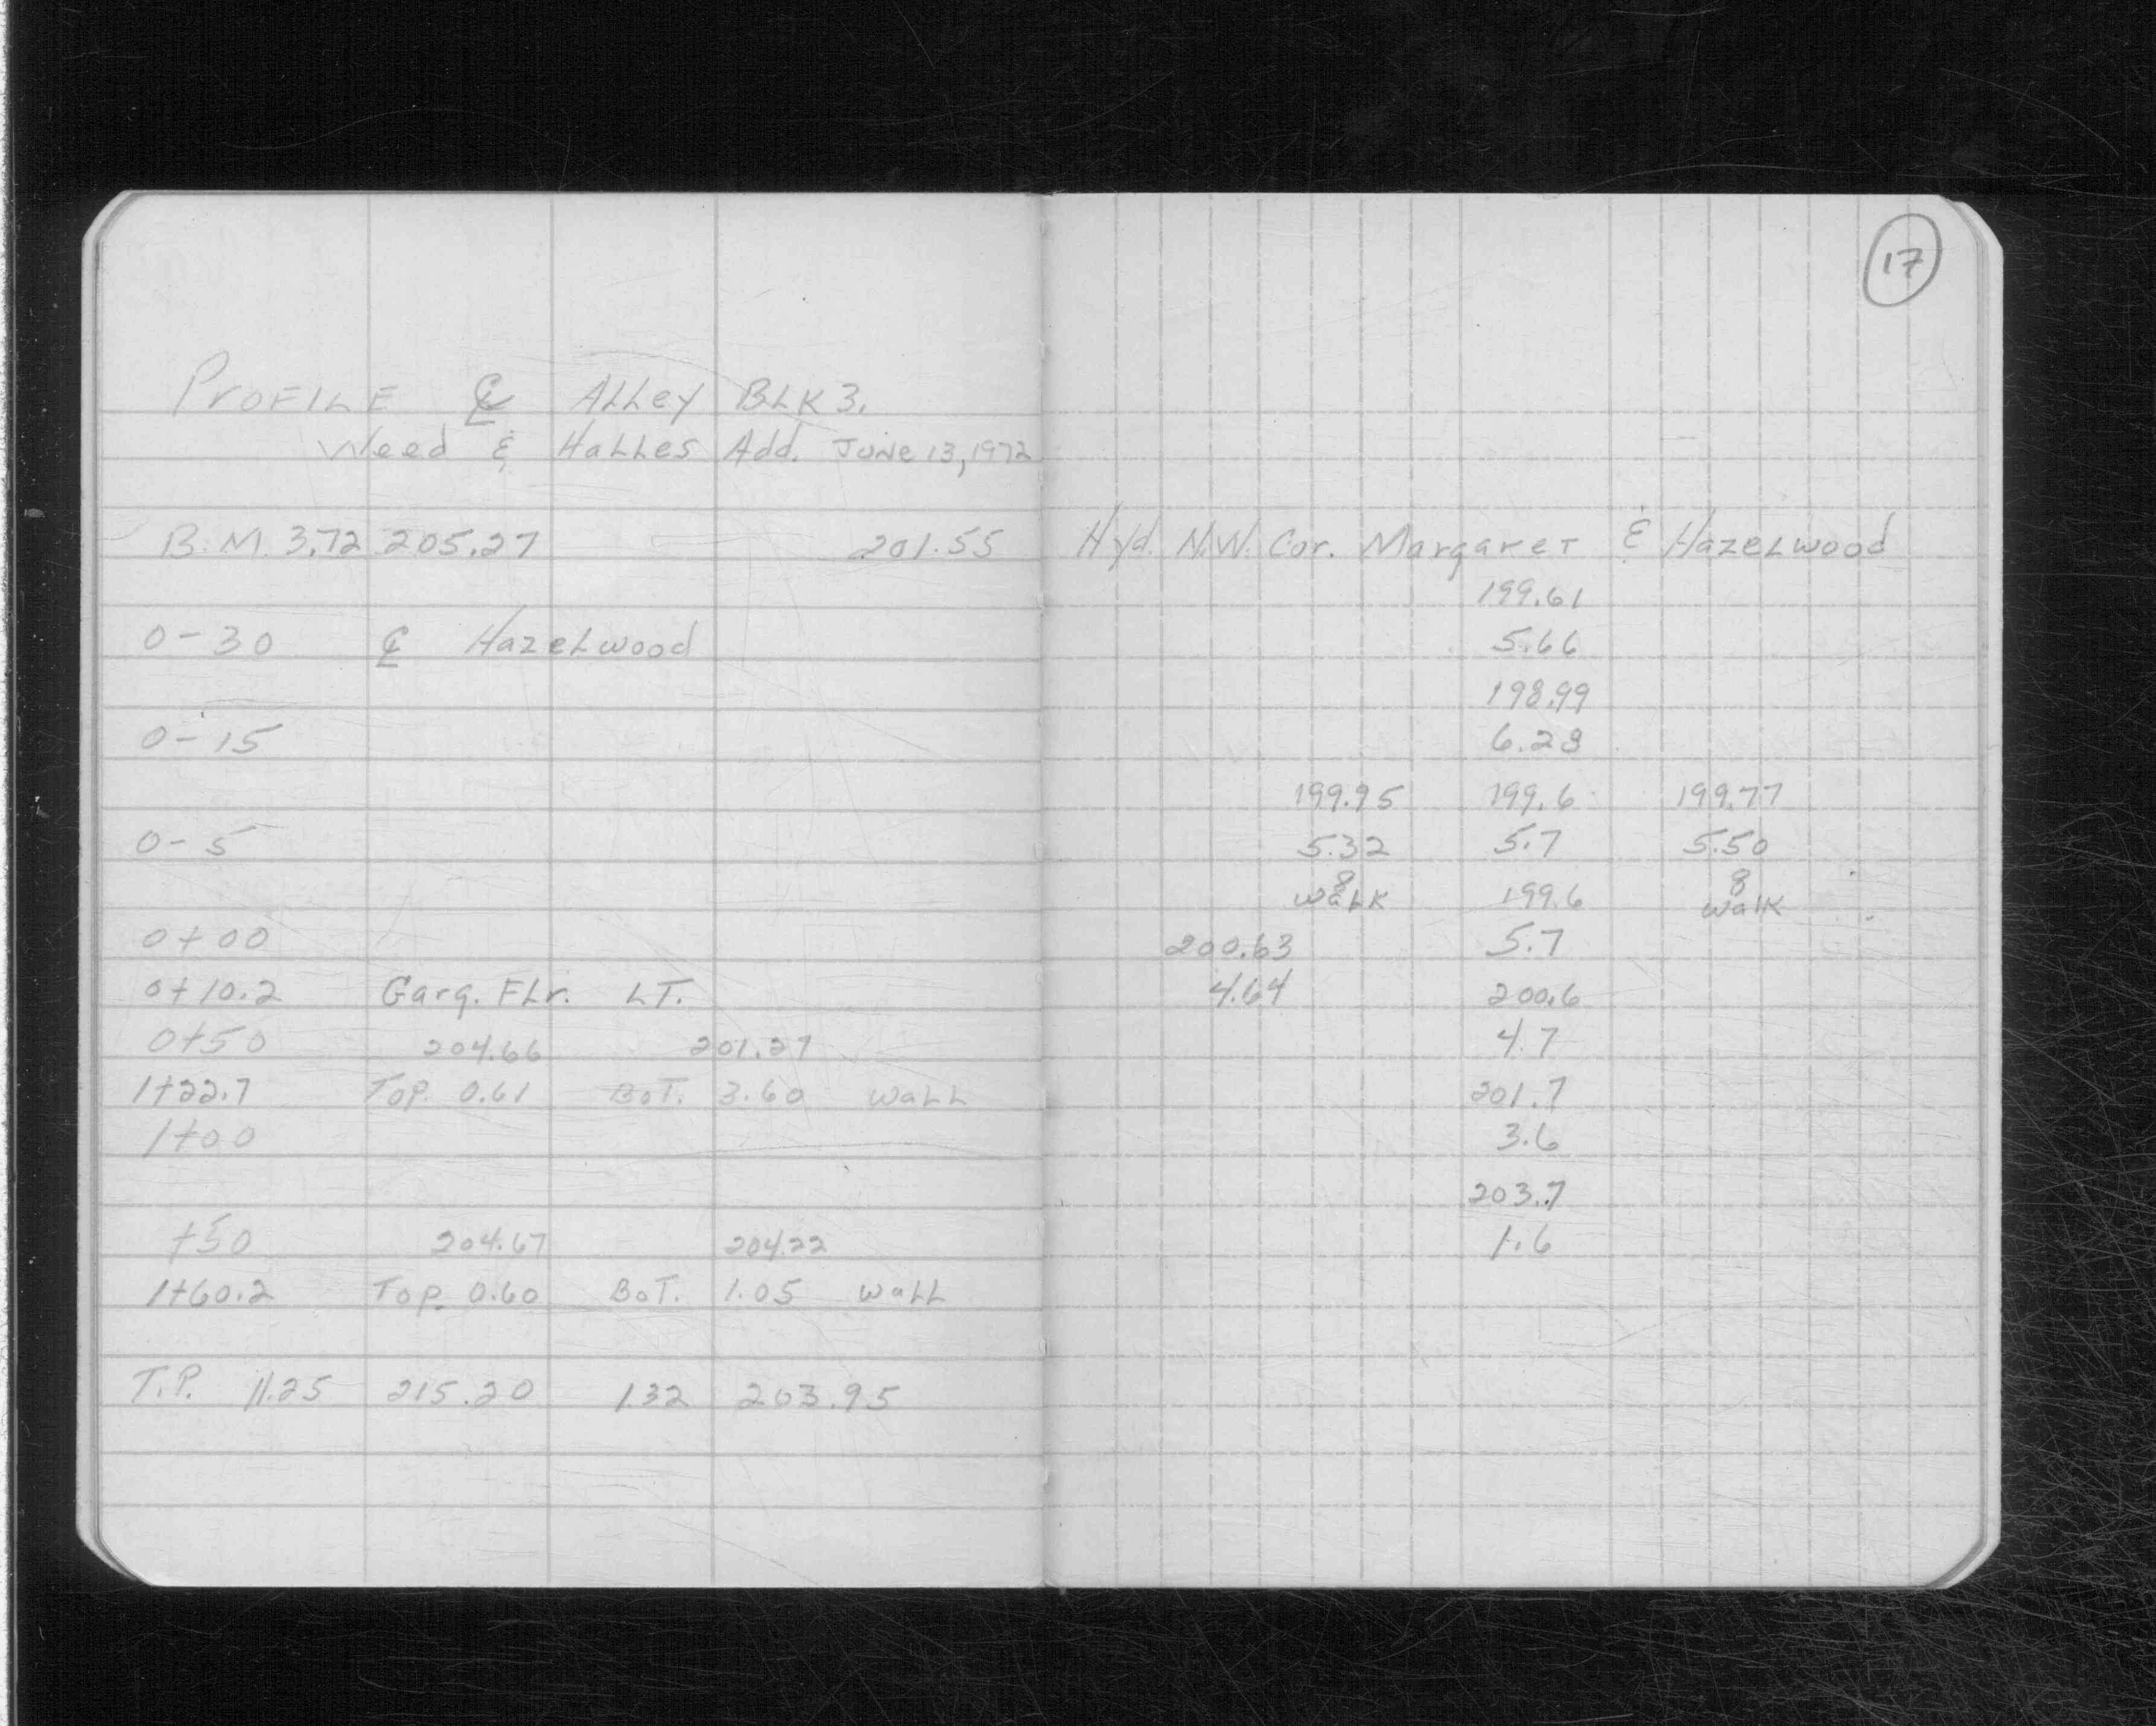 17
PROFILE ℄ ALLEY BLK 3.
Weed & HaLLes Add. JUNE 13, 1972
B.M. 3.72 205.27 201.55 Hyd. N.W. Cor. MargareT & HazeLwood
199.61
0-30 ℄ HazeLwood 5.66
198.99
0-15 6.28
199.95 199.6 199.77
0-5 5.32 5.7 5.50
8 8
waLK 199.6 walK
0+00 200.63 5.7
0+10.2 Garg. FLr. LT. 4.64 200.6
0+50 204.66 201.27 4.7
1+22.7 Top. 0.61 BoT. 3.60 waLL 201.7
1+00 3.6
203.7
+50 204.67 204.22 1.6
1+60.2 Top. 0.60 BoT. 1.05 waLL
T.P. 11.25 215.20 1.32 203.95